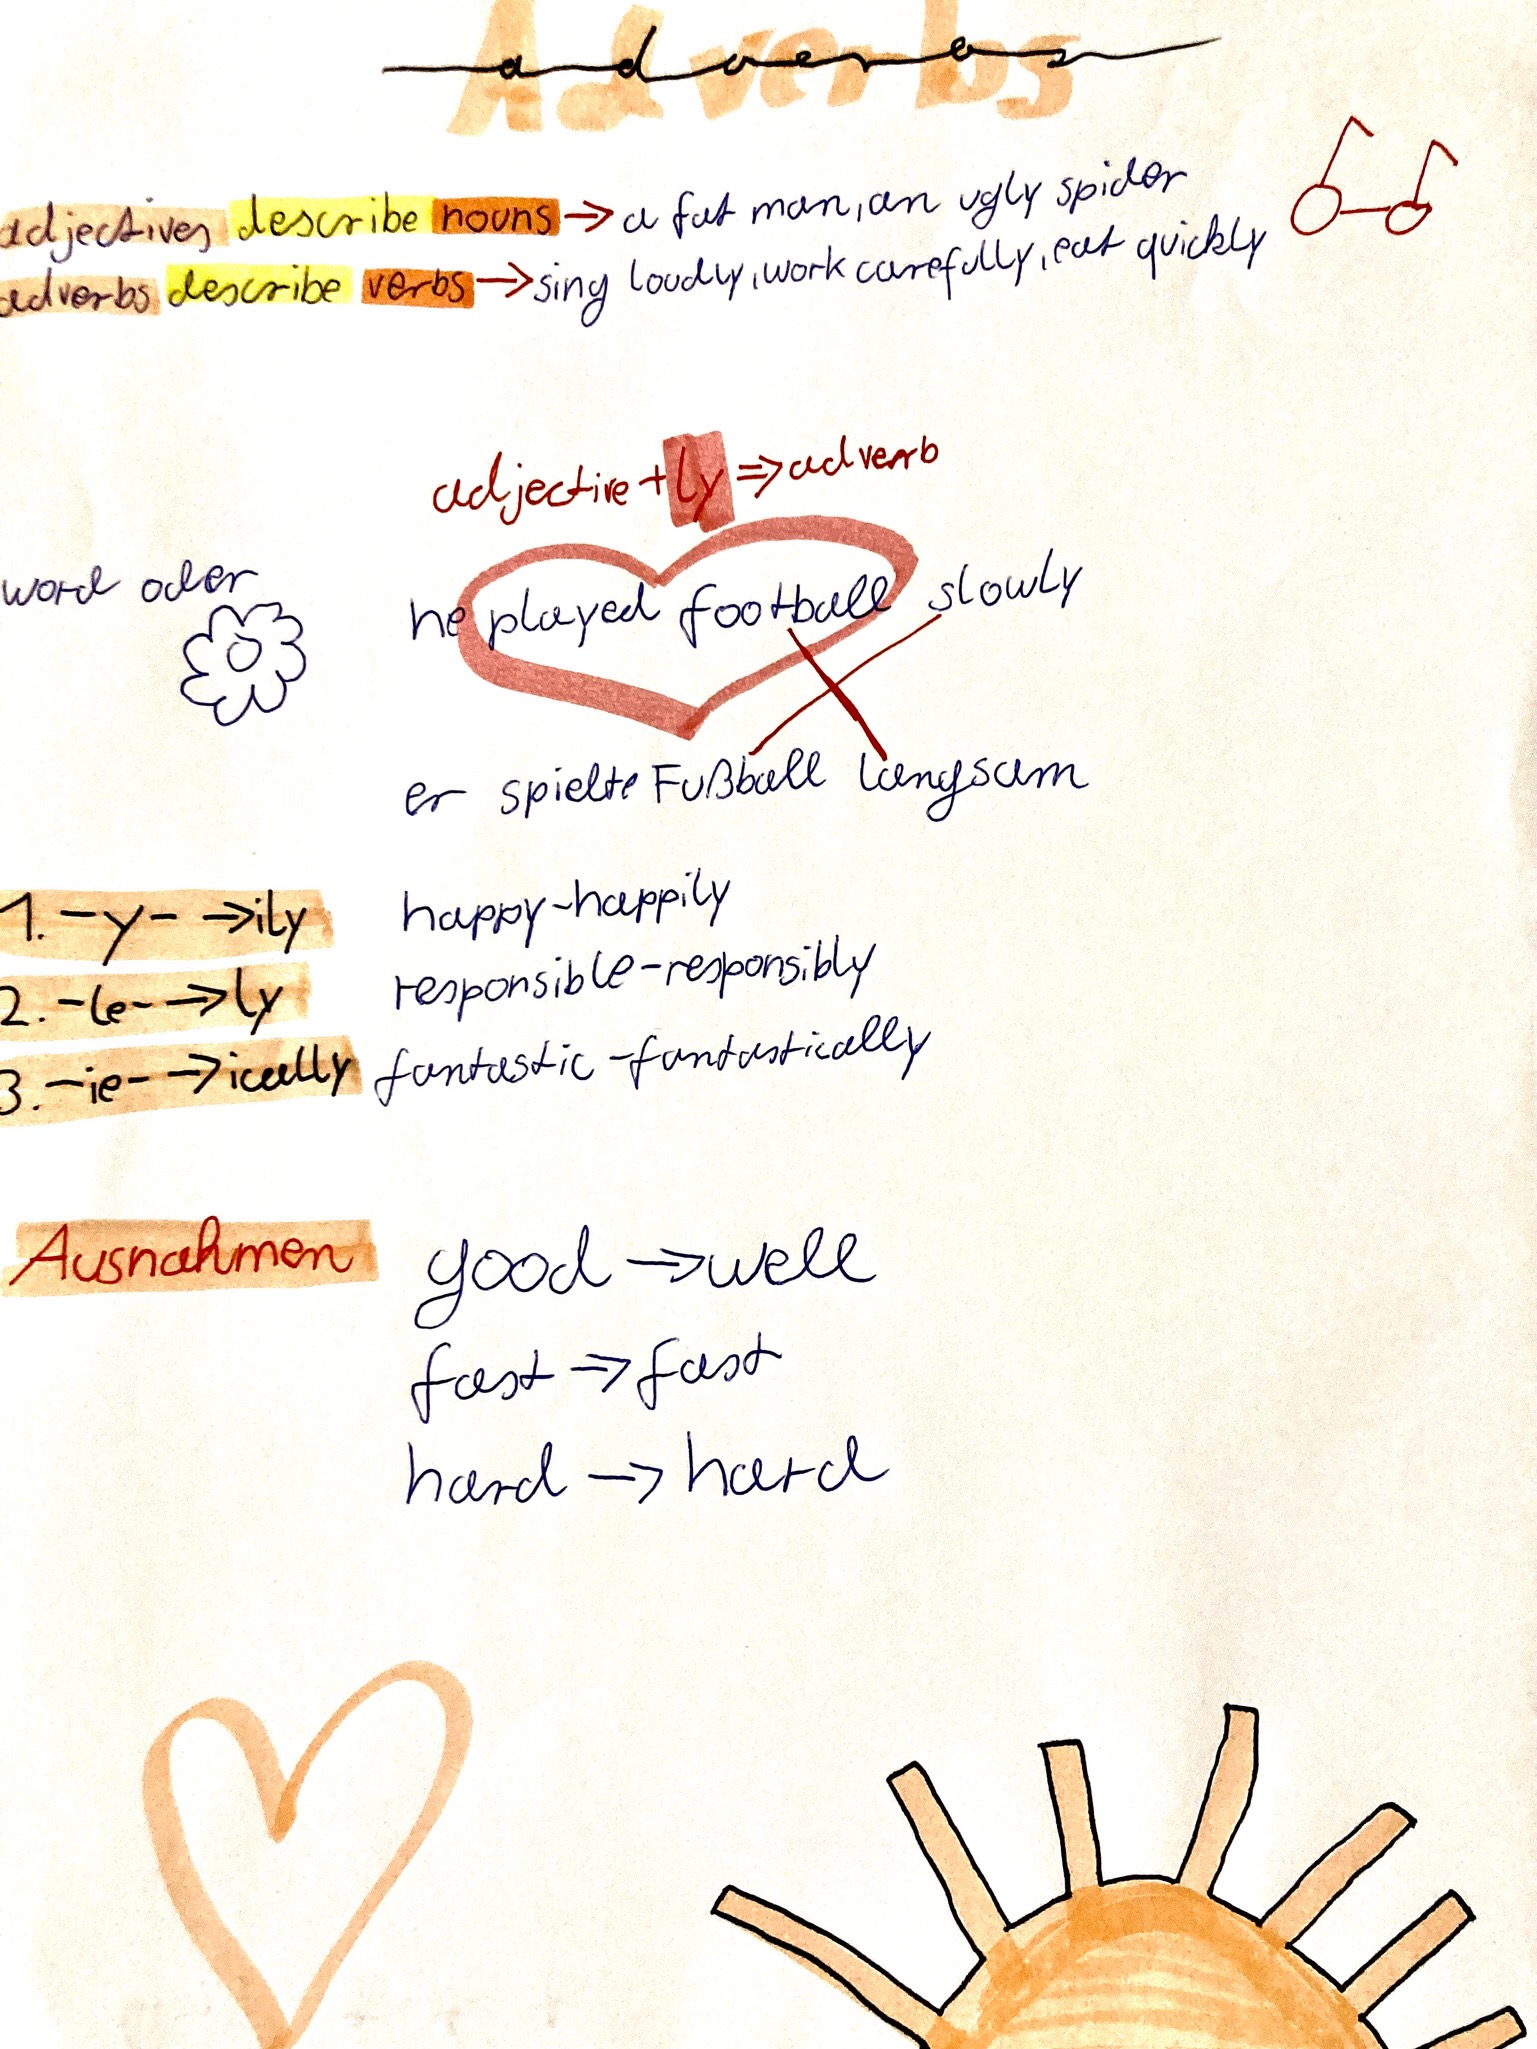 Adverbs
adverbs
adjectives describe nouns → a fat man, an ugly spider
adverbs describe verbs → sing loudly, work carefully, eat quickly
adjective + ly ⇒ adverb
word oder
he played football slowly
er spielte Fußball langsam
1. -y- → ily happy - happily
2. -le- → ly responsible - responsibly
3. -ie- → ically fantastic - fantastically
Ausnahmen good → well
fast → fast
hard → hard